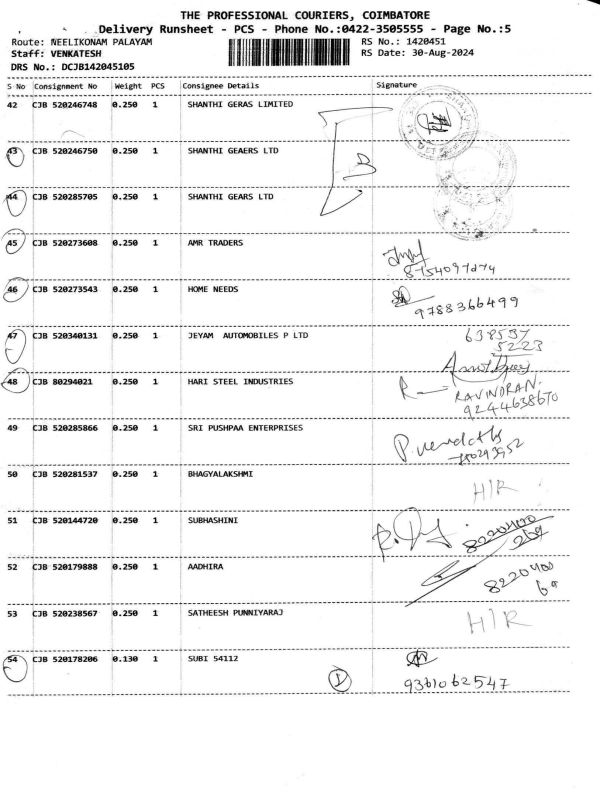 THE PROFESSIONAL COURIERS, COIMBATORE
Delivery Runsheet - PCS - Phone No.:0422-3505555 - Page No.:5
Route: NEELIKONAM PALAYAM RS No.: 1420451
Staff: VENKATESH RS Date: 30-Aug-2024
DRS No.: DCJB142045105
S No Consignment No Weight PCS Consignee Details Signature
42 CJB 520246748 0.250 1 SHANTHI GERAS LIMITED
43 CJB 520246750 0.250 1 SHANTHI GEAERS LTD
44 CJB 520285705 0.250 1 SHANTHI GEARS LTD
45 CJB 520273608 0.250 1 AMR TRADERS
46 CJB 520273543 0.250 1 HOME NEEDS
9788366499
47 CJB 520340131 0.250 1 JEYAM AUTOMOBILES P LTD
638537
5223
48 CJB 80294021 0.250 1 HARI STEEL INDUSTRIES
RAVINDRAN.
9244638670
49 CJB 520285866 0.250 1 SRI PUSHPAA ENTERPRISES
50 CJB 520281537 0.250 1 BHAGYALAKSHMI
H/R
51 CJB 520144720 0.250 1 SUBHASHINI
8220400
269
52 CJB 520179888 0.250 1 AADHIRA
8220400
69
53 CJB 520238567 0.250 1 SATHEESH PUNNIYARAJ
H/R
54 CJB 520178206 0.130 1 SUBI 54112
9361062547